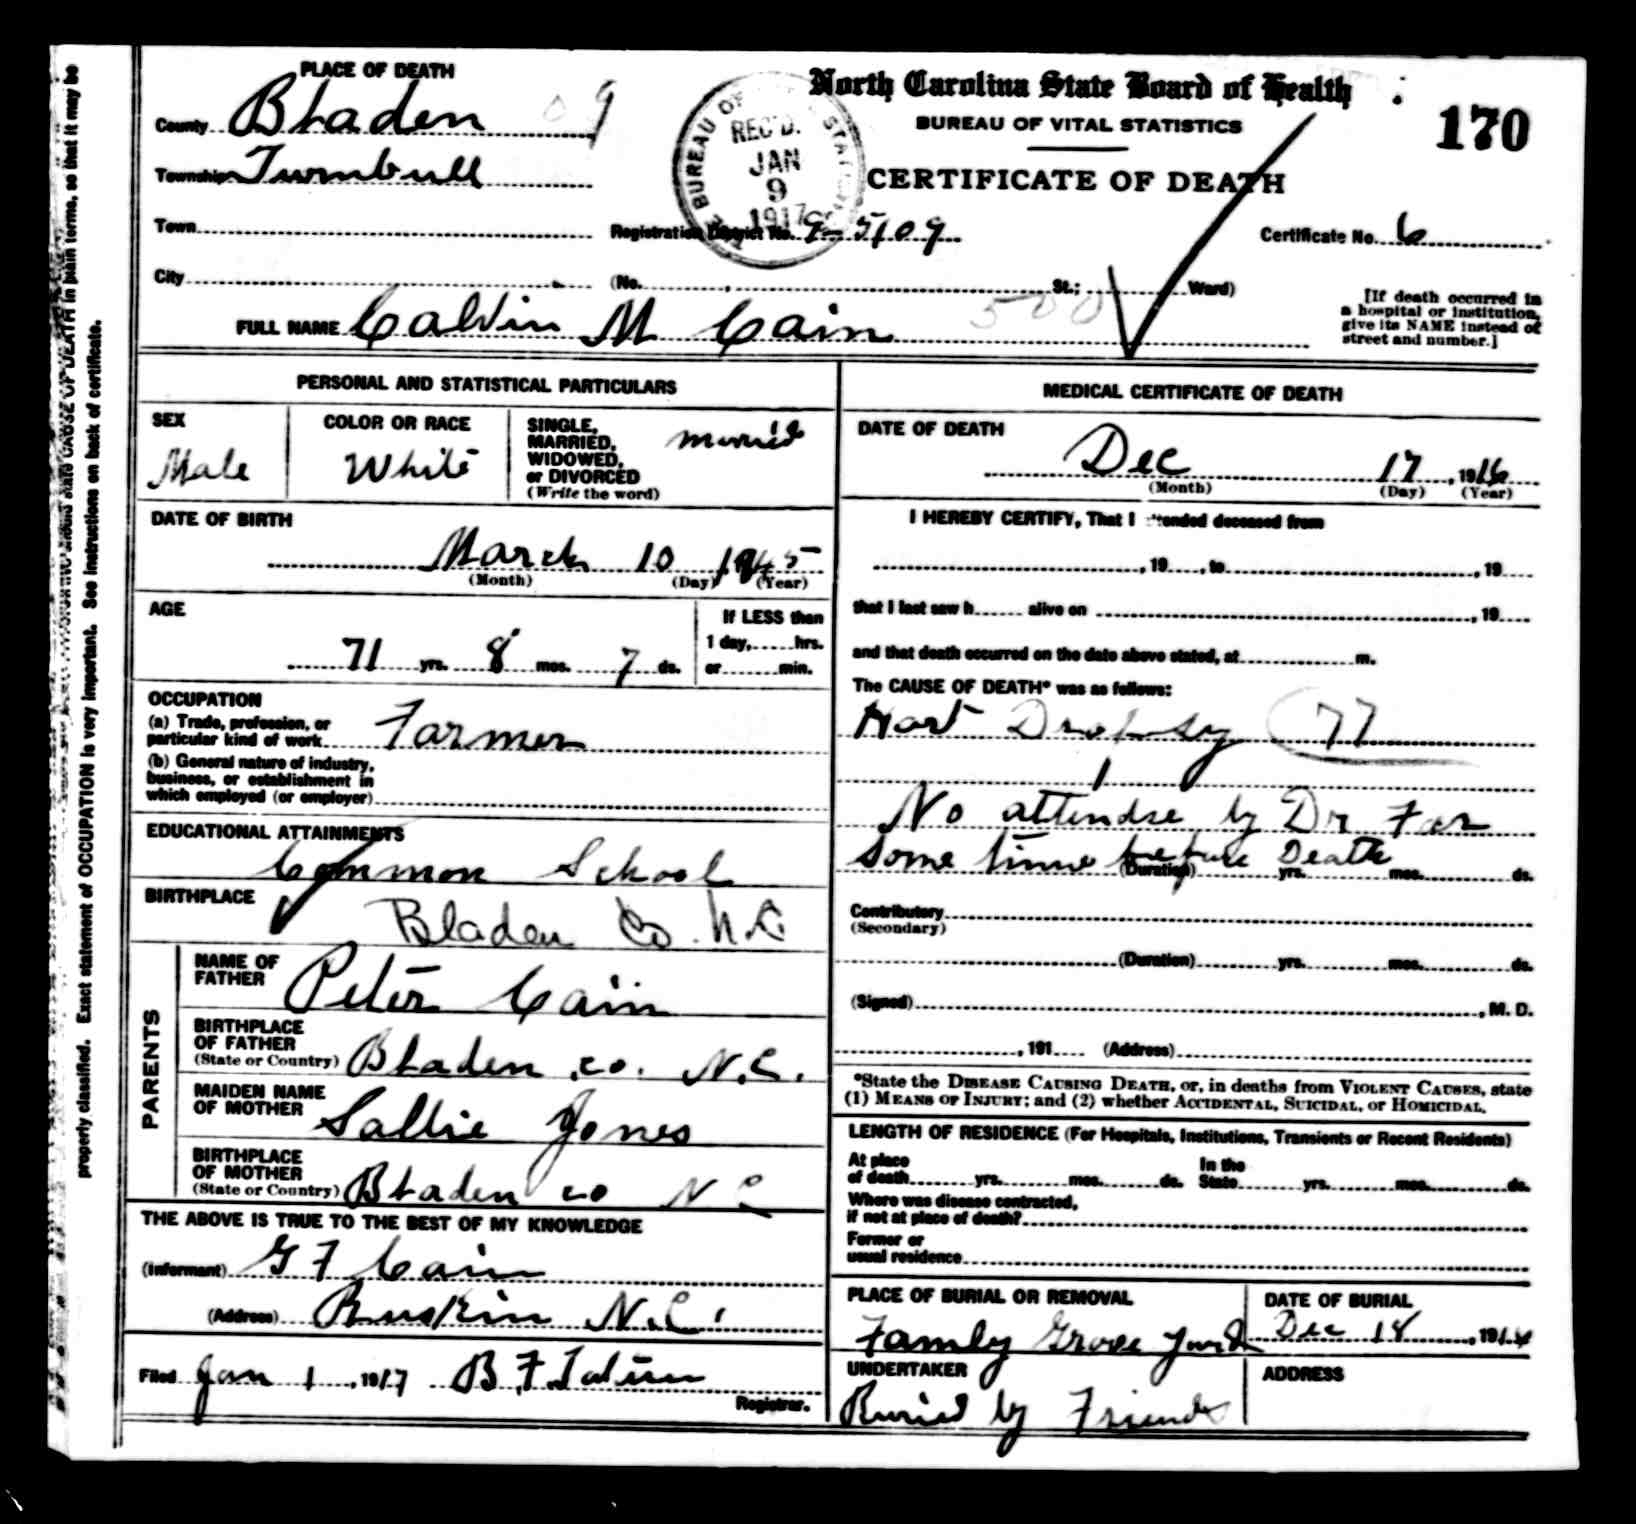 PLACE OF DEATH
County Bladen 09
Township Turnbull
Town
City (No. St.; Ward)
FULL NAME Calvin M Cain 500
BUREAU OF STAT
REC'D.
JAN
9
1917
North Carolina State Board of Health
BUREAU OF VITAL STATISTICS
CERTIFICATE OF DEATH
170
Registration District No. 9-5109
Certificate No. 6
[If death occurred in
a hospital or institution,
give its NAME instead of
street and number.]
PERSONAL AND STATISTICAL PARTICULARS
SEX
Male
COLOR OR RACE
White
SINGLE,
MARRIED,
WIDOWED,
or DIVORCED
(Write the word)
married
DATE OF BIRTH
March 10 1845
(Month) (Day) (Year)
AGE
71 yrs. 8 mos. 7 ds.
If LESS than
1 day, hrs.
or min.
OCCUPATION
(a) Trade, profession, or
particular kind of work Farmer
(b) General nature of industry,
business, or establishment in
which employed (or employer)
EDUCATIONAL ATTAINMENTS
Common School
BIRTHPLACE
Bladen Co. N.C.
PARENTS
NAME OF
FATHER Peter Cain
BIRTHPLACE
OF FATHER
(State or Country) Bladen co. N.C.
MAIDEN NAME
OF MOTHER Sallie Jones
BIRTHPLACE
OF MOTHER
(State or Country) Bladen co N C
THE ABOVE IS TRUE TO THE BEST OF MY KNOWLEDGE
(Informant) G F Cain
(Address) Ruskin N.C.
Filed Jan 1, 1917 B F Tatum
Registrar.
MEDICAL CERTIFICATE OF DEATH
DATE OF DEATH
Dec 17, 1916
(Month) (Day) (Year)
I HEREBY CERTIFY, That I attended deceased from
, 19 , to , 19
that I last saw h alive on , 19
and that death occurred on the date above stated, at m.
The CAUSE OF DEATH* was as follows:
Hart Dropsy 77
No attendse by Dr Far
some time before Death
(Duration) yrs. mos. ds.
Contributory
(Secondary)
(Duration) yrs. mos. ds.
(Signed) , M. D.
, 191 (Address)
*State the DISEASE CAUSING DEATH, or, in deaths from VIOLENT CAUSES, state
(1) MEANS OF INJURY; and (2) whether ACCIDENTAL, SUICIDAL, or HOMICIDAL.
LENGTH OF RESIDENCE (For Hospitals, Institutions, Transients or Recent Residents)
At place
of death yrs. mos. ds.
In the
State yrs. mos. ds.
Where was disease contracted,
if not at place of death?
Former or
usual residence
PLACE OF BURIAL OR REMOVAL
Family Grave Yard
DATE OF BURIAL
Dec 18, 1916
UNDERTAKER
Buried by Friends
ADDRESS
should state CAUSE OF DEATH in plain terms, so that it may be
properly classified. Exact statement of OCCUPATION is very important. See instructions on back of certificate.